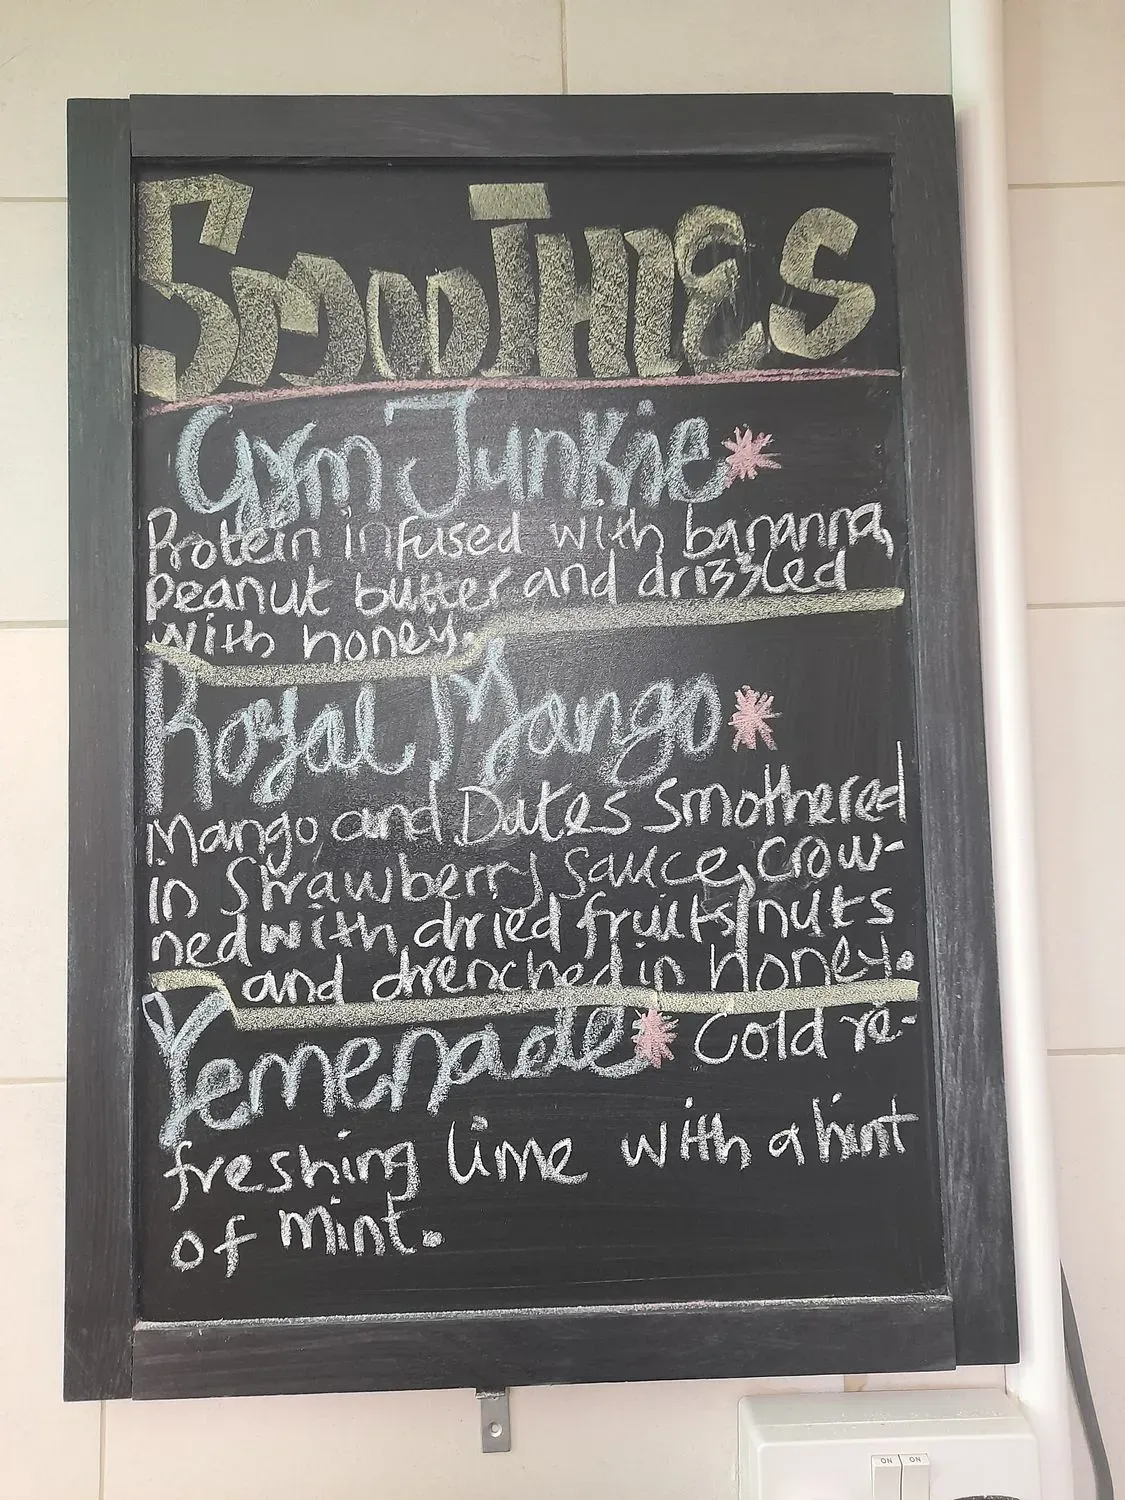 SmooThIES
Gym Junkie*
Protein infused with bananna,
Peanut butter and drizzled
with honey.
Royal Mango*
Mango and Dates Smothered
in Strawberry Sauce, Crow-
ned with dried fruits/nuts
and drenched in honey.
Yemenade* Cold re-
freshing lime with a hint
of mint.
ON ON